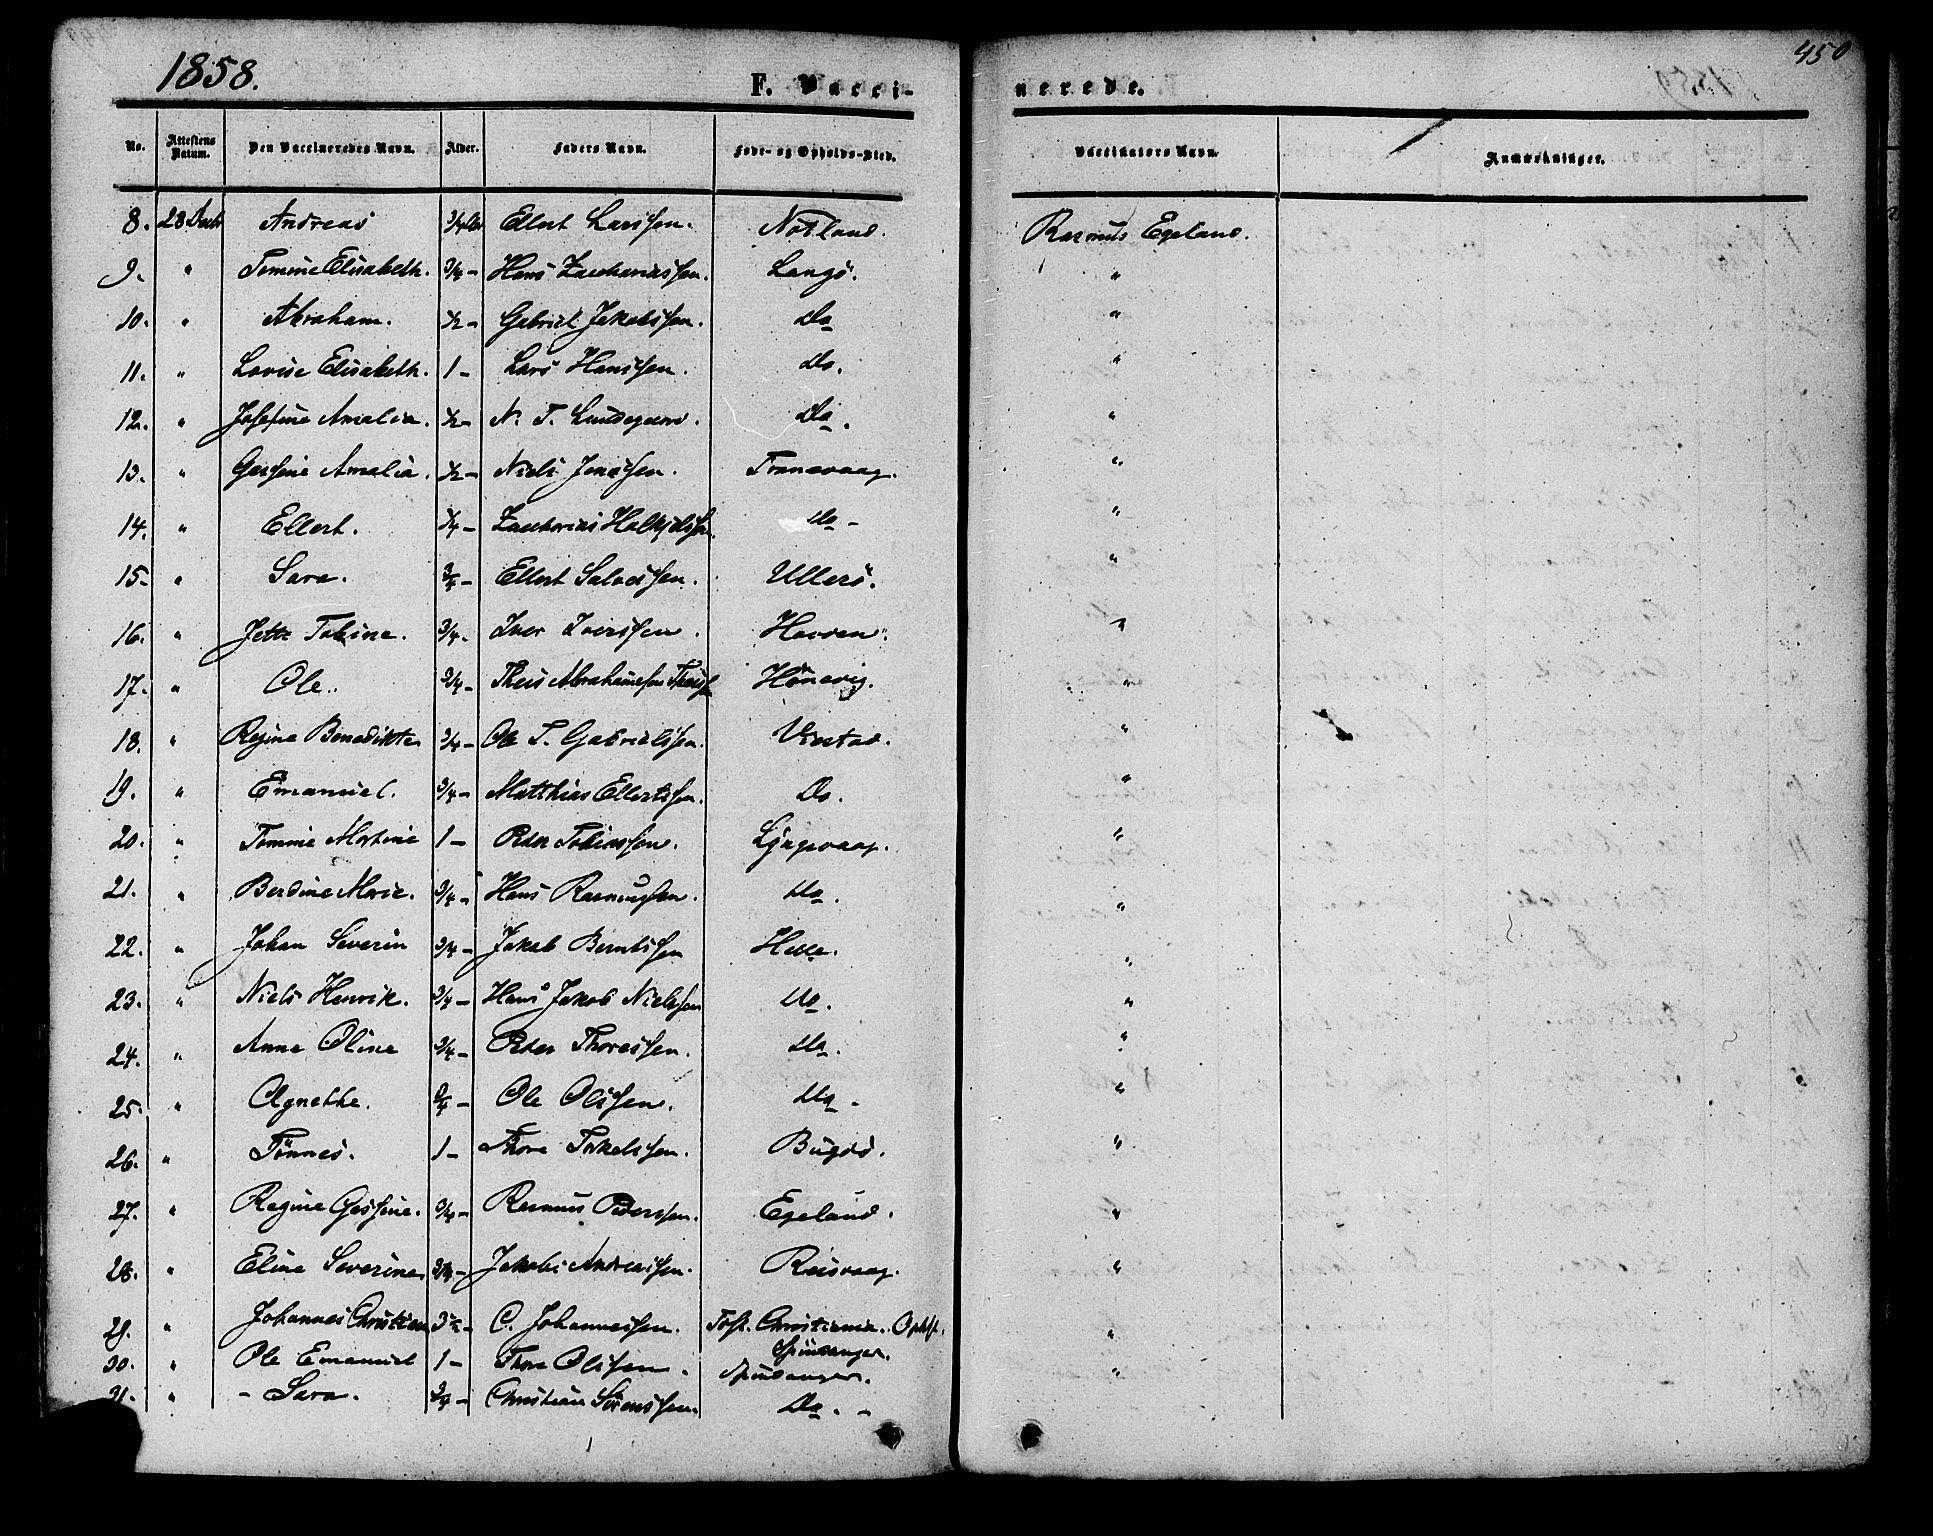 1858.
F. Vacci-
nerede.
450
No. Attestens Datum. Den Vaccineredes Navn. Alder. Faders Navn. Føde- og Opholds-Sted. Vaccinators Navn. Anmærkninger.
8. 28 Andreas 3/4 Ellert Larssen. Rasmus Egeland.
9. " Tomine Elisabeth. 3/4 - Hans Zachariassen. Langö. "
10. " Abraham. 1/2 - Gabriel Jakobssen. Do "
11. " Lovise Elisabeth. 1 - Lars Hanssen. Do. "
12. " Josefine Amalia. 1/2 - N. T. Lundegaard. Do. "
13. " Gessine Amalia. 1/2 - Niels Jonassen. Tranevaag. "
14. " Ellert. - Zacharias Do - "
15. " Sara. 3/4 - Ellert Salvessen. Ullerö. "
16. " Jette Tobine. 3/4 - Iver Iverssen. Havsen. "
17. " Ole. 3/4 - Theis Abrahamssen Hönevig. "
18. " Regine Benedikte 3/4 - Ole T. Gabrielssen. "
19. " Emanuel. 3/4 - Matthias Ellertssen. Do. "
20. " Tomine Martine 1 - Peder Tobiassen. "
21. " Berdine Marie. 3/4 - Hans Rasmussen. Do. "
22. " Johan Severin 3/4 - Jakob Berntssen Helle. "
23. " Niels Henrik. 3/4 - Hans Jakob Nielssen Do. "
24. " Anne Oline 3/4 - Peder Thoressen. Do. "
25. " Agnethe. 3/4 - Ole Olissen. Do - "
26. " Tönnes. 1 - Thore Torkelssen. "
27. " Regine Gessine. 3/4 - Rasmus Pederssen. Egeland. "
28. " Eline Severine 3/4 - Jakob Andreassen. Reisvaag. "
29. " Johannes Christian - C. Johannessen. Föst. Christiania. Opholdst. "
Spindsanger.
30. " Ole Emanuel 1 - Thore Olissen. Spindsanger. "
31. " - Sara. 3/4 - Christian Sörenssen. Do. -